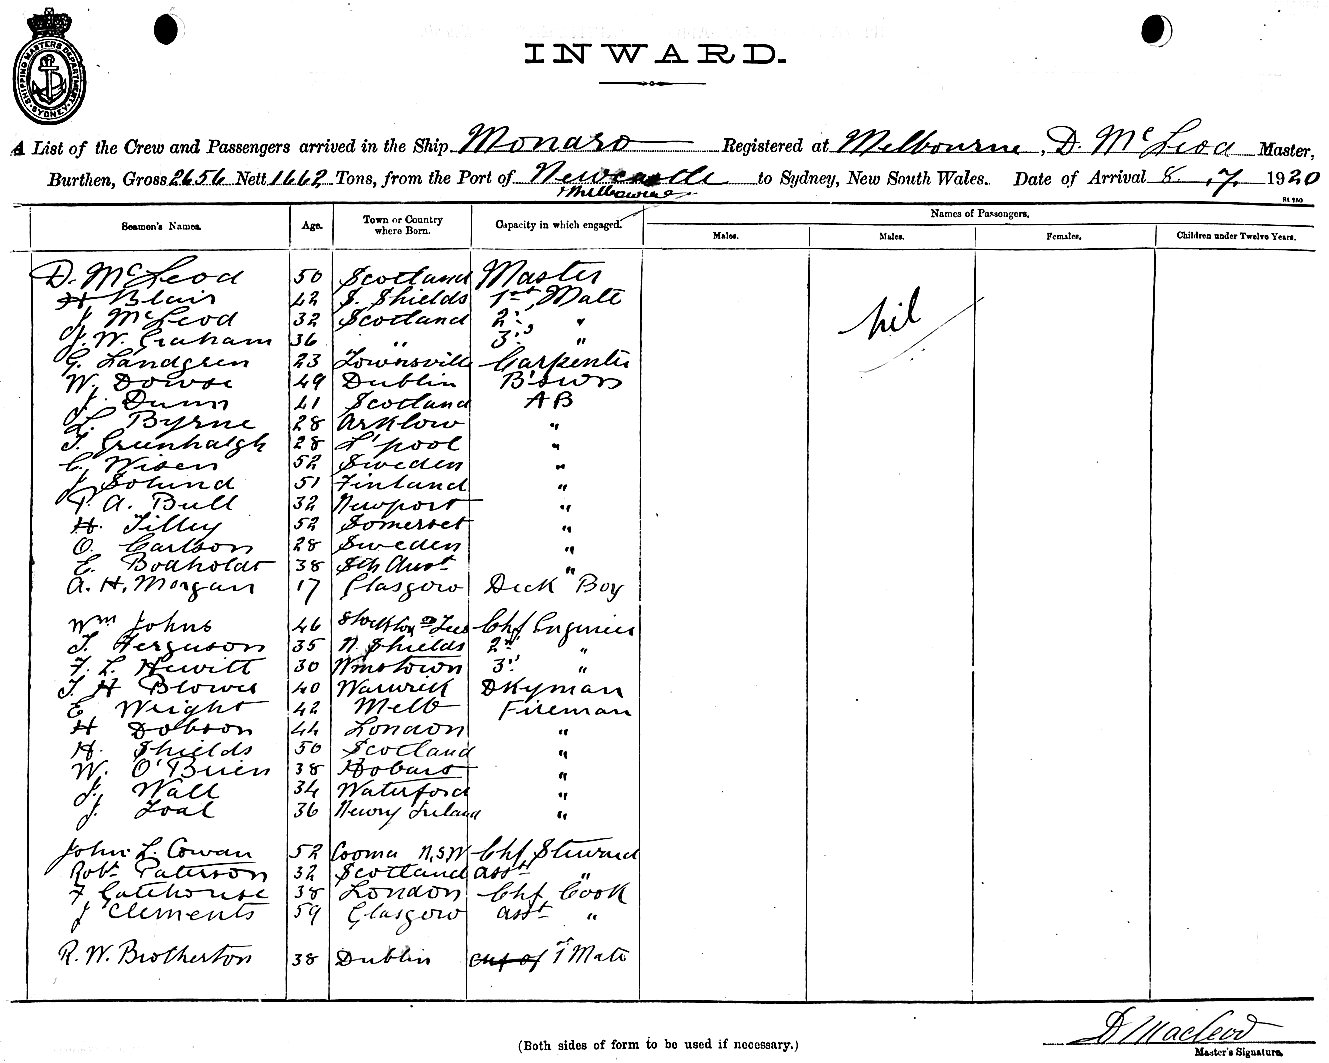 SHIPPING MASTERS DEPARTMENT SYDNEY
INWARD.
A List of the Crew and Passengers arrived in the Ship Monaro Registered at Melbourne, D. McLeod Master,
Burthen, Gross 2656 Nett 1662 Tons, from the Port of Newcastle to Sydney, New South Wales. Date of Arrival 8. 7. 1920
& Melbourne
Seamen's Names. Age. Town or Country where Born. Capacity in which engaged. Names of Passengers.
Males. Males. Females. Children under Twelve Years.
D. McLeod 50 Scotland Master
H Blair 42 S. Shields 1st Mate
J McLeod 32 Scotland 2nd "
J. W. Graham 36 " 3rd "
nil
G. Landgren 23 Townsville Carpenter
W. Dowse 49 Dublin B'swn
J. Dunn 41 Scotland AB
L. Byrne 28 Arklow "
T. Greenhalgh 28 L'pool "
C. Wisen 52 Sweden "
J. Solund 51 Finland "
P. A. Bull 32 Newport "
H. Tilley 52 Somerset "
O. Carlson 28 Sweden "
E. Bodholdt 38 Sth Aust "
A. H. Morgan 17 Glasgow Deck Boy
Wm Johns 46 Stockton on Tees Chf Engineer
T. Ferguson 35 N. Shields 2nd "
F. L. Hewitt 30 Wmstown 3rd "
T H Blower 40 Warwick Dkyman
E Wright 42 Melb Fireman
H Dobson 44 London "
H. Shields 50 Scotland "
W. O'Brien 38 Hobart "
J. Wall 34 Waterford "
J. Toal 36 Newry Ireland "
John L. Cowan 52 Cooma N.S.W Chf Steward
Robt Paterson 32 Scotland asst "
F Gatehouse 38 London Chf Cook
J Clements 59 Glasgow asst "
R. W. Brotherton 38 Dublin 1st Mate
D Macleod
Master's Signature.
(Both sides of form to be used if necessary.)